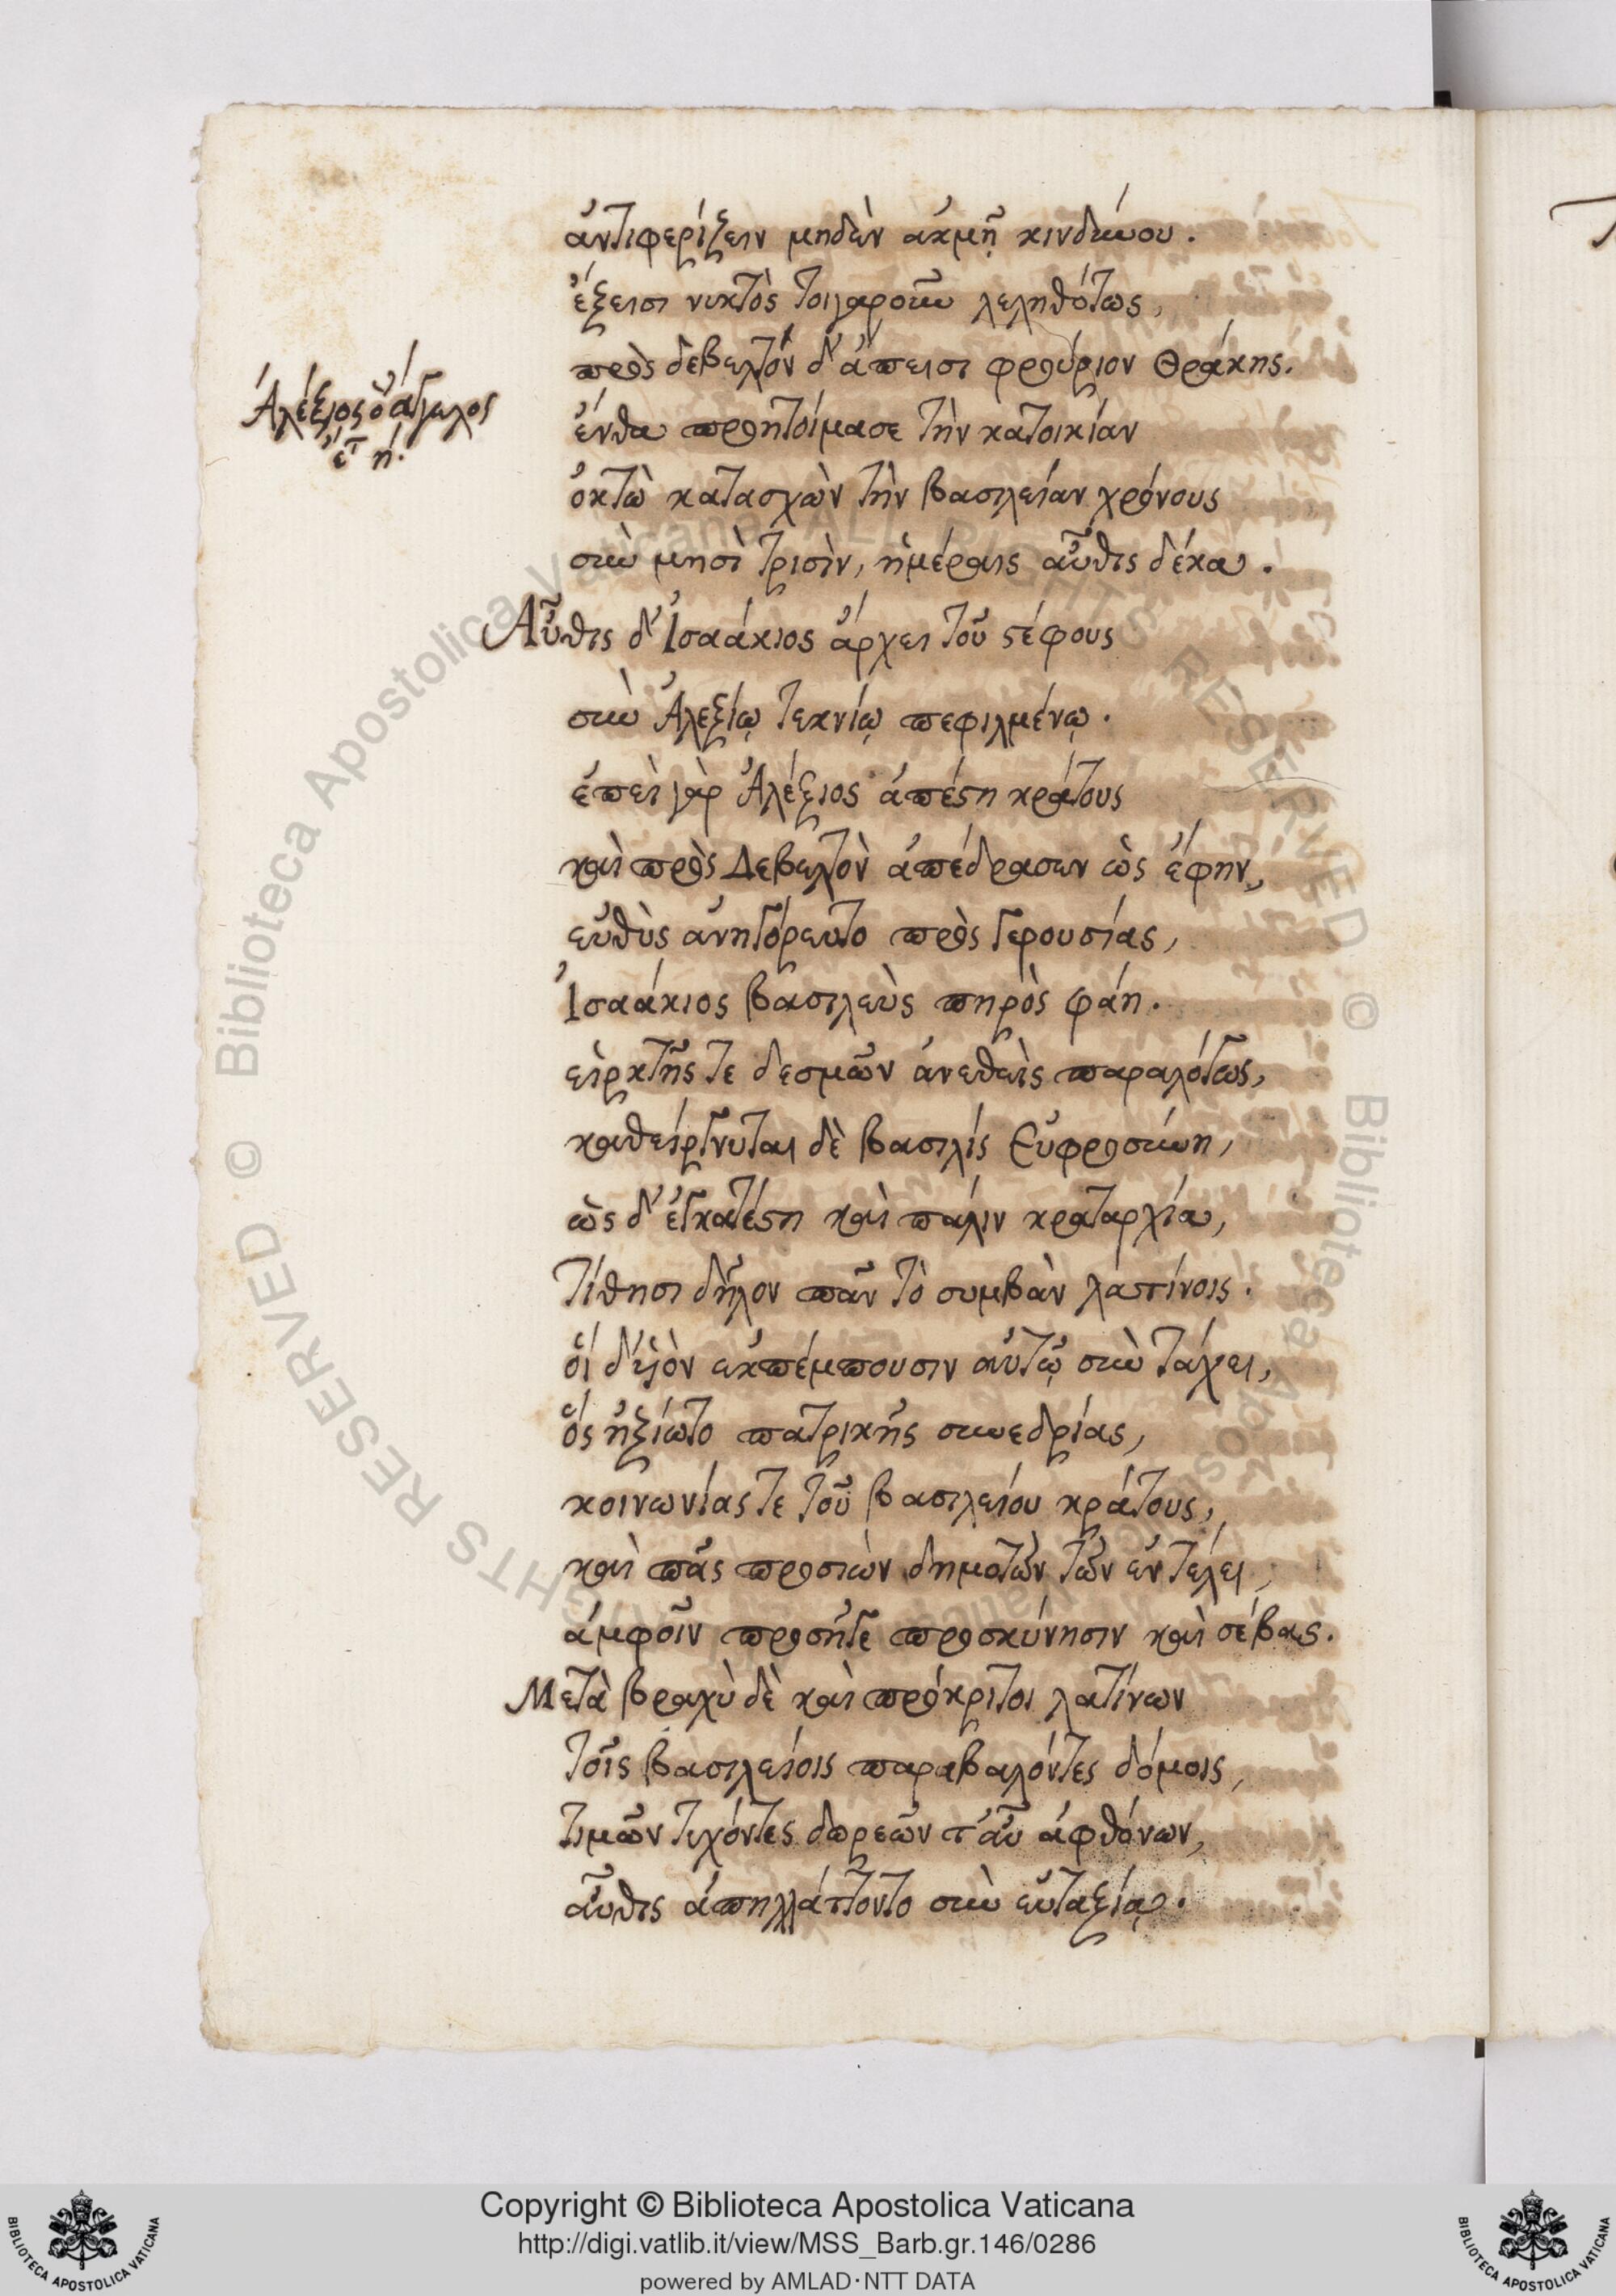 ἀντιφερίζειν μηδὲν ἀκμῇ κινδύνου.
ἔξεισι νυκτὸς τοιγαροῦν λεληθότως,
πρὸς δεβελτὸν δ' ἄπεισι φρούριον Θράκης.
Ἀλέξιος ὁ ἄγγελος
ἔτ η΄.
ἔνθα προητοίμασε τὴν κατοικίαν
ὀκτὼ κατασχὼν τὴν βασιλείαν χρόνους
σὺν μησὶ τρισὶν, ἡμέραις αὖθις δέκα.
Αὖθις δ' Ἰσαάκιος ἄρχει τοῦ στέφους
σὺν Ἀλεξίῳ τεκνίῳ πεφιλμένῳ.
ἐπεὶ γὰρ Ἀλέξιος ἀπέστη κράτους
καὶ πρὸς Δεβελτὸν ἀπέδρασεν ὡς ἔφην,
εὐθὺς ἀνηγόρευτο πρὸς γερουσίας,
Ἰσαάκιος βασιλεὺς πηρὸς φάη.
εἱρκτῆς τε δεσμῶν ἀνεθεὶς παραλόγως,
καθείργνυται δὲ βασιλίς Εὐφροσύνη,
ὡς δ' ἐγκατέστη καὶ πάλιν κραταρχία,
τίθησι δῆλον πᾶν τὸ συμβὰν λατίνοις.
οἱ δ' υἱὸν ἐκπέμπουσιν αὐτῷ σὺν τάχει,
ὃς ἠξίωτο πατρικῆς συνεδρίας,
κοινωνίας τε τοῦ βασιλείου κράτους,
καὶ πᾶς προσιὼν δημοτῶν τῶν ἐν τέλει,
ἀμφοῖν προσῆγε προσκύνησιν καὶ σέβας.
Μετὰ βραχὺ δὲ καὶ πρόκριτοι λατίνων
τοῖς βασιλείοις παραβαλόντες δόμοις,
τιμῶν τυχόντες δωρεῶν τ' αὖ ἀφθόνων,
αὖθις ἀπηλλάττοντο σὺν εὐταξίᾳ.
Copyright © Biblioteca Apostolica Vaticana
http://digi.vatlib.it/view/MSS_Barb.gr.146/0286
powered by AMLAD·NTT DATA